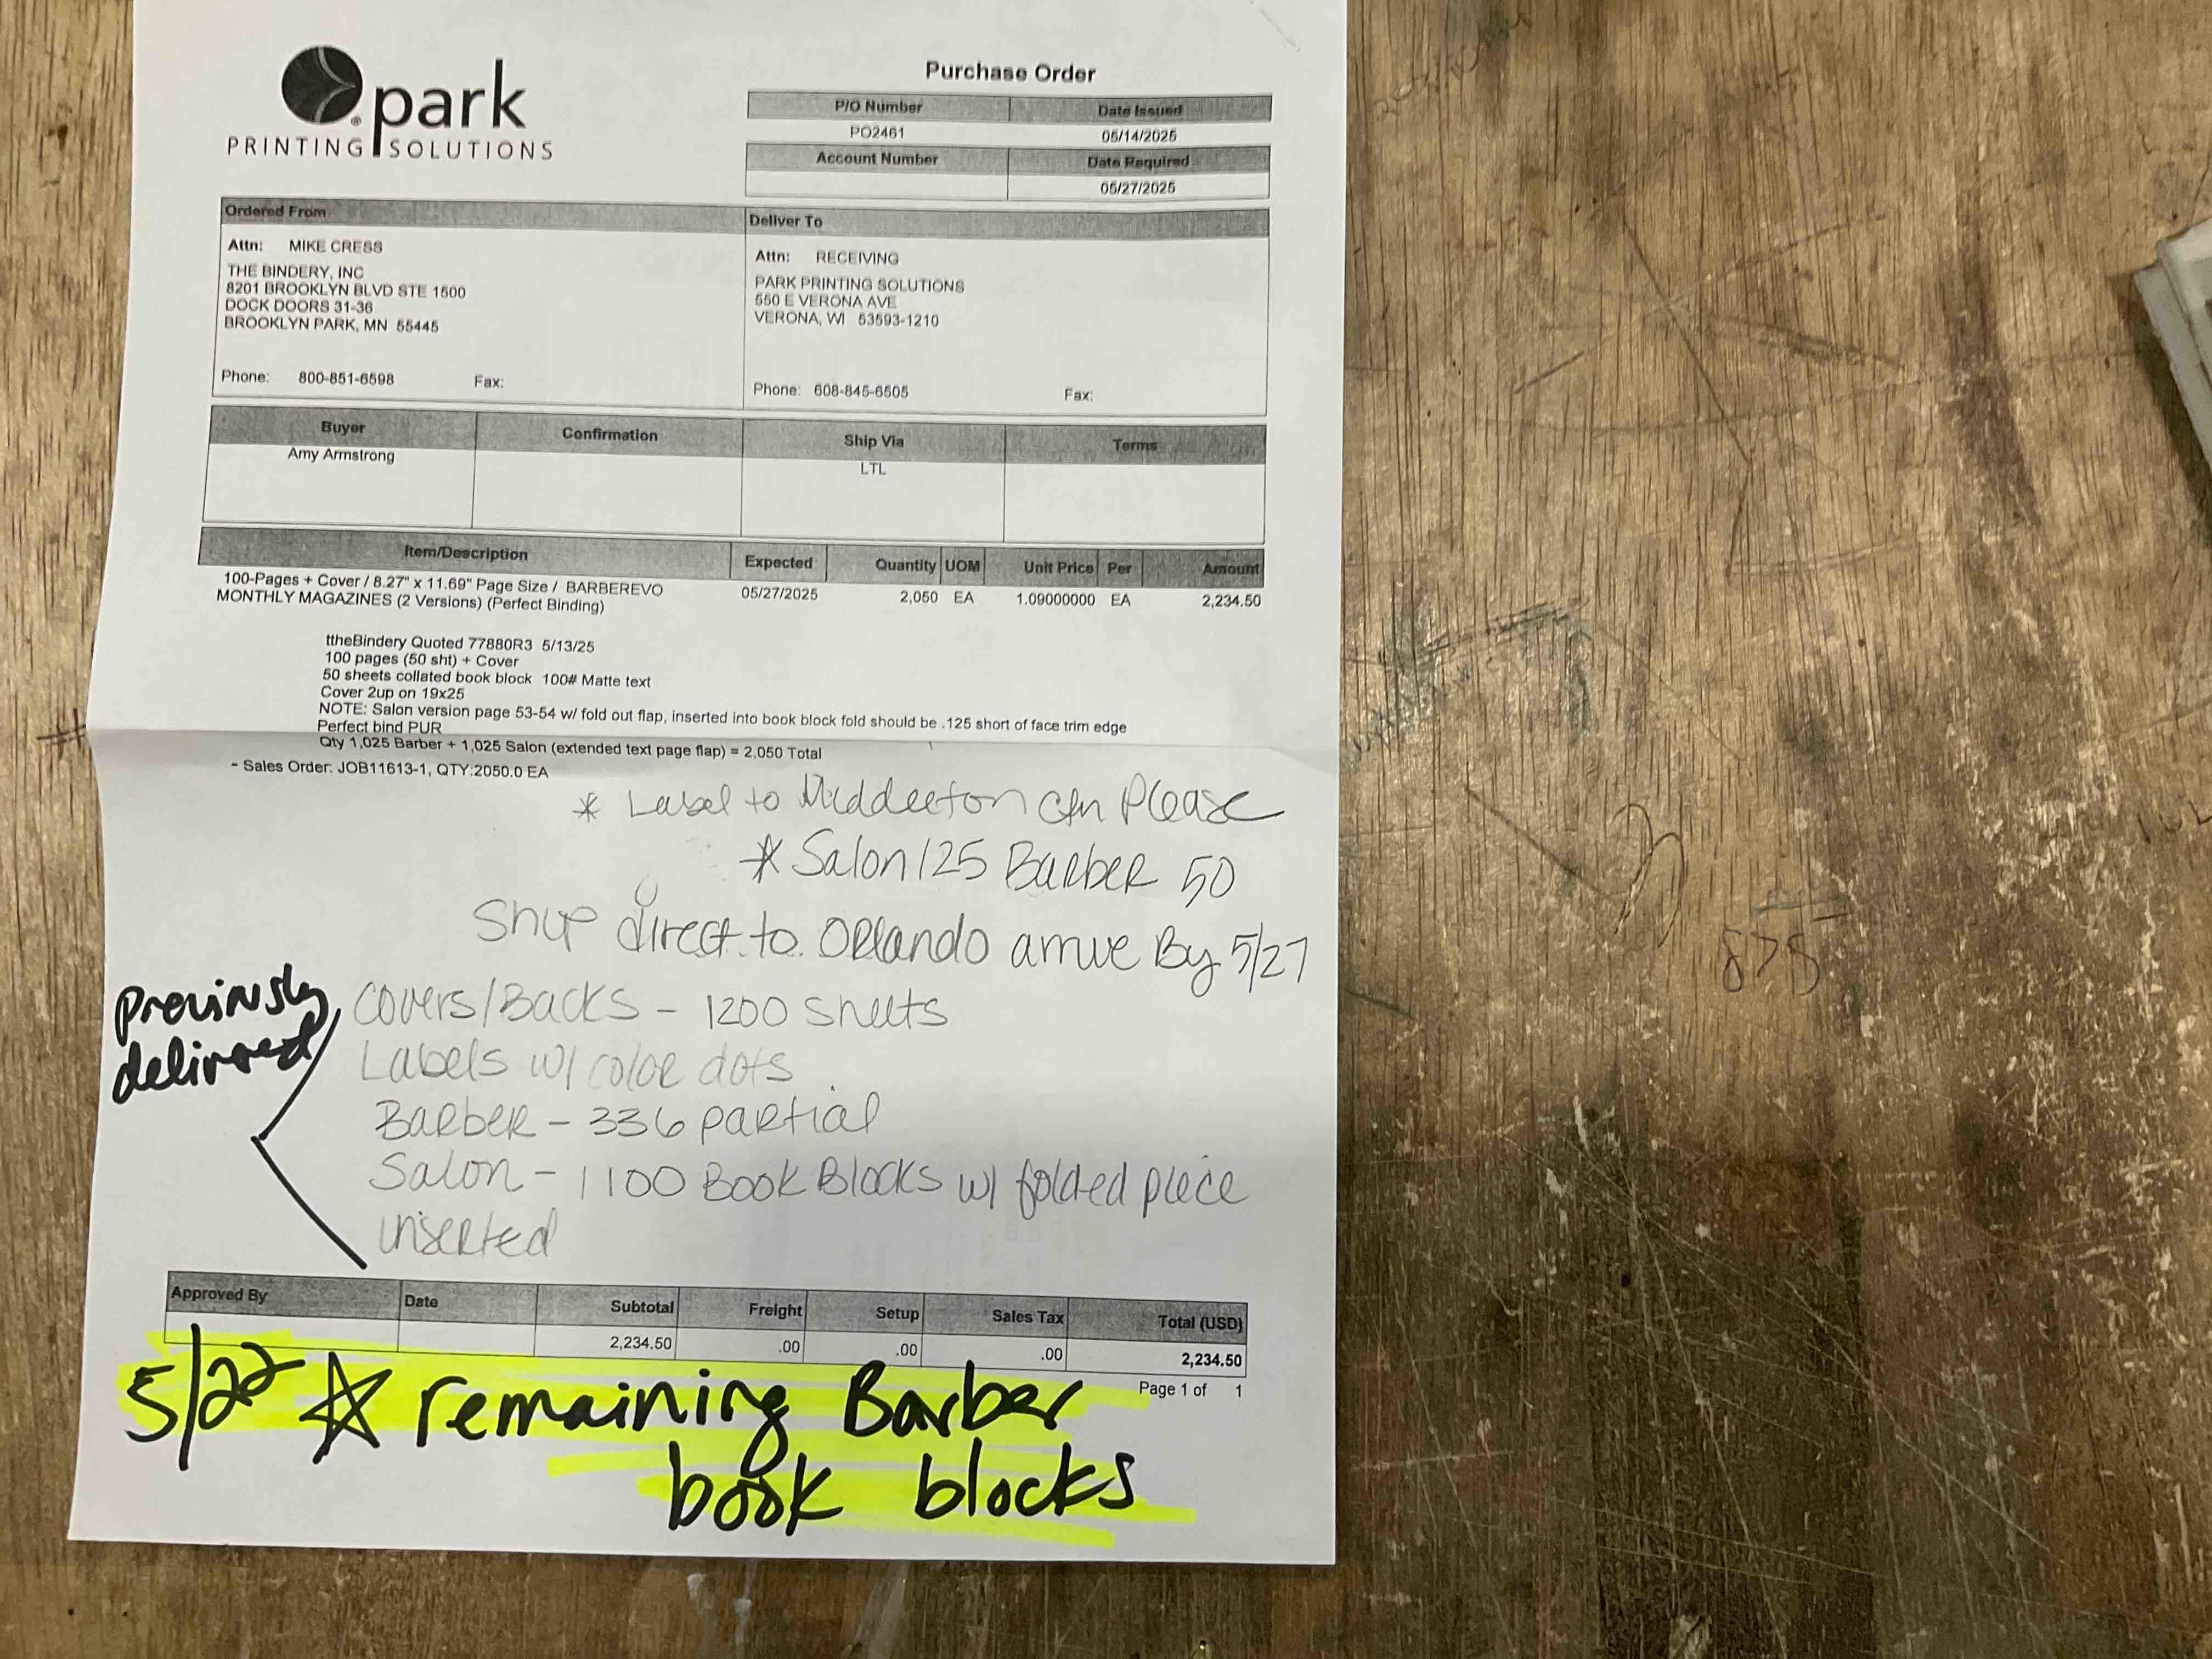 park
PRINTING SOLUTIONS
Purchase Order
P/O Number Date Issued
PO2461 05/14/2025
Account Number Date Required
05/27/2025
Ordered From
Attn: MIKE CRESS
THE BINDERY, INC
8201 BROOKLYN BLVD STE 1500
DOCK DOORS 31-36
BROOKLYN PARK, MN 55445
Phone: 800-851-6598 Fax:
Deliver To
Attn: RECEIVING
PARK PRINTING SOLUTIONS
550 E VERONA AVE
VERONA, WI 53593-1210
Phone: 608-845-6505 Fax:
Buyer Confirmation Ship Via Terms
Amy Armstrong LTL
Item/Description Expected Quantity UOM Unit Price Per Amount
100-Pages + Cover / 8.27" x 11.69" Page Size / BARBEREVO 05/27/2025 2,050 EA 1.09000000 EA 2,234.50
MONTHLY MAGAZINES (2 Versions) (Perfect Binding)
ttheBindery Quoted 77880R3 5/13/25
100 pages (50 sht) + Cover
50 sheets collated book block 100# Matte text
Cover 2up on 19x25
NOTE: Salon version page 53-54 w/ fold out flap, inserted into book block fold should be .125 short of face trim edge
Perfect bind PUR
Qty 1,025 Barber + 1,025 Salon (extended text page flap) = 2,050 Total
- Sales Order: JOB11613-1, QTY:2050.0 EA
* Label to Middleton Please
* Salon 125 Barber 50
Ship direct to Orlando arrive By 5/27
Previously delivered
Covers/Backs - 1200 sheets
Labels w/ color dots
Barber - 336 partial
Salon - 1100 Book Blocks w/ folded piece
inserted
Approved By Date Subtotal Freight Setup Sales Tax Total (USD)
2,234.50 .00 .00 .00 2,234.50
Page 1 of 1
5/22 ☆ remaining Barber
book blocks
875